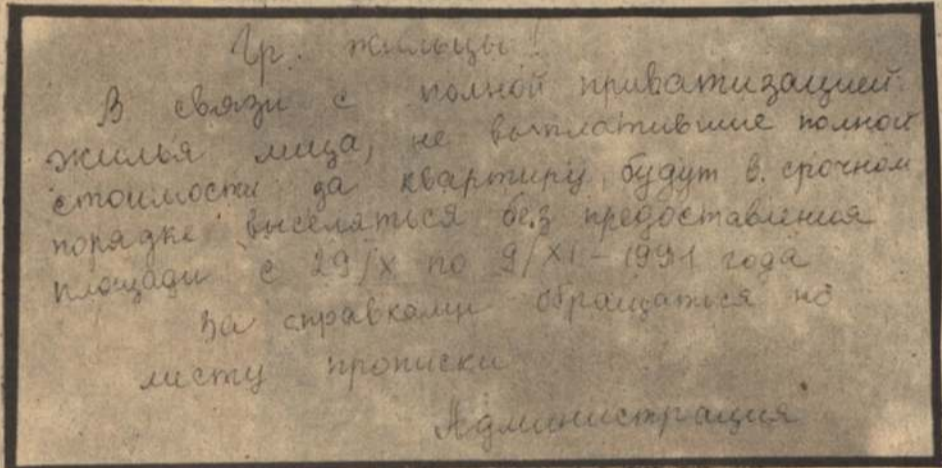 Гр. жильцы!
В связи с полной приватизацией
жилья лица, не выплатившие полной
стоимости за квартиру, будут в срочном
порядке выселяться без предоставления
площади с 29/X по 9/XI - 1991 года
За справками обращаться по
месту прописки
Администрация